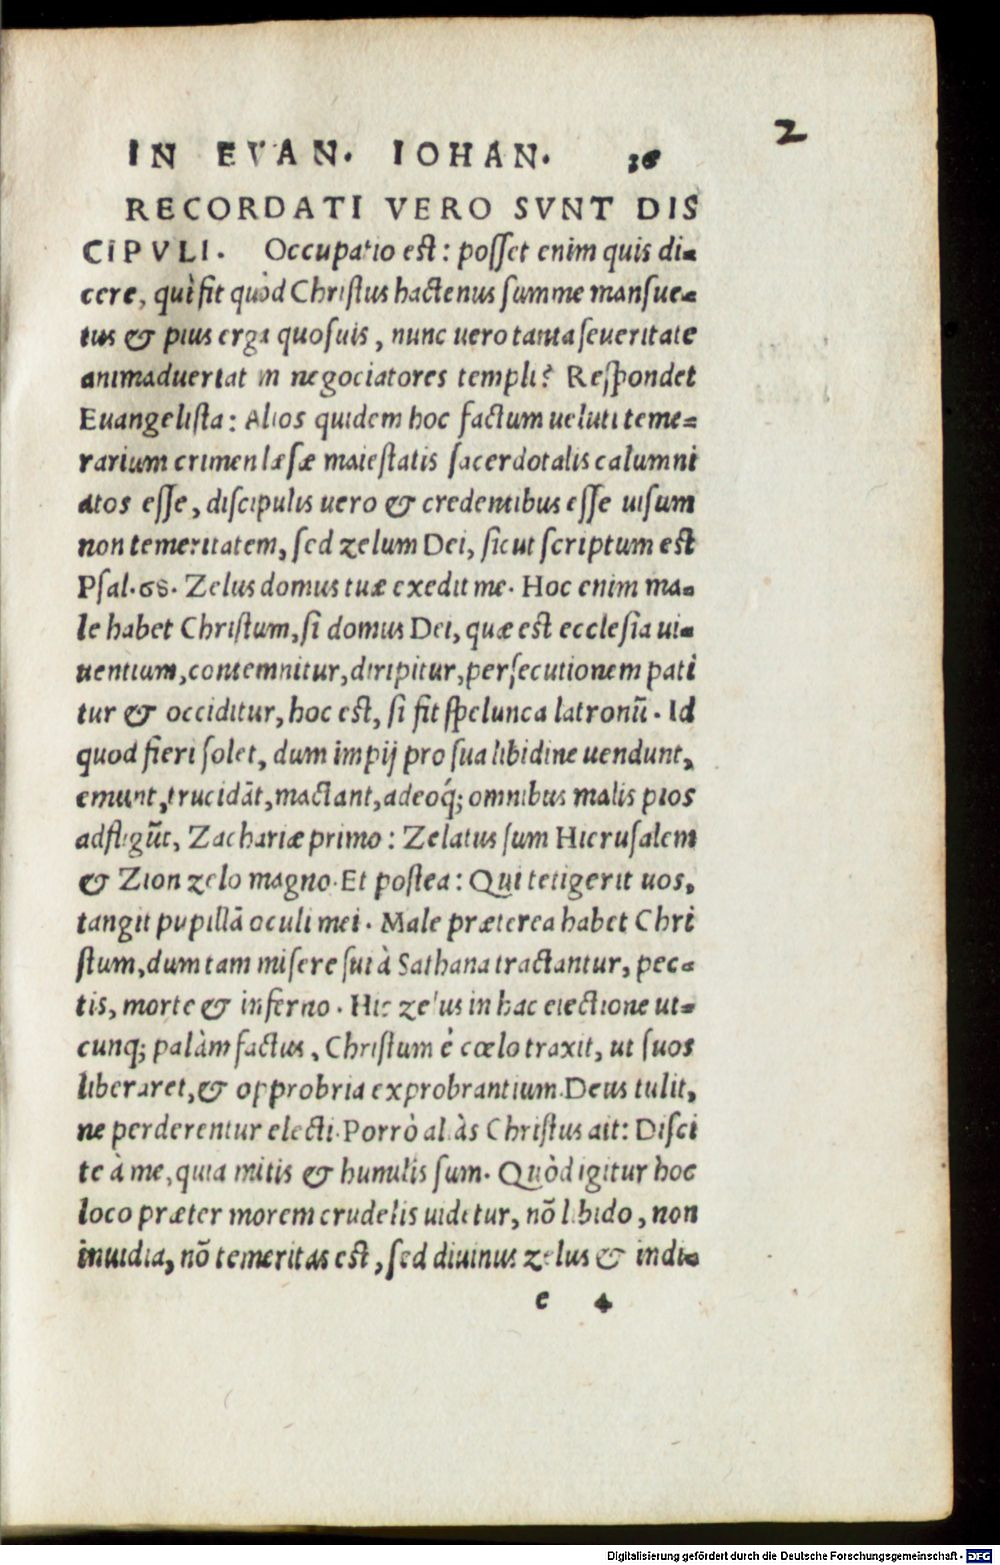 2
IN EVAN. IOHAN. 36
RECORDATI VERO SVNT DIS
CIPVLI. Occupatio est: posset enim quis di-
cere, quì fit quòd Christus hactenus summe mansue-
tus & pius erga quosuis, nunc uero tanta seueritate
animaduertat in negociatores templi? Respondet
Euangelista: Alios quidem hoc factum ueluti teme-
rarium crimen læsæ maiestatis sacerdotalis calumni
atos esse, discipulis uero & credentibus esse uisum
non temeritatem, sed zelum Dei, sicut scriptum est
Psal. 68. Zelus domus tuæ exedit me. Hoc enim ma-
le habet Christum, si domus Dei, quæ est ecclesia ui-
uentium, contemnitur, diripitur, persecutionem pati
tur & occiditur, hoc est, si fit spelunca latronũ. Id
quod fieri solet, dum impij pro sua libidine uendunt,
emunt, trucidãt, mactant, adeoq́; omnibus malis pios
adfligũt, Zachariæ primo: Zelatus sum Hierusalem
& Zion zelo magno. Et postea: Qui tetigerit uos,
tangit pupillã oculi mei. Male præterea habet Chri
stum, dum tam misere sui à Sathana tractantur, pec-
tis, morte & inferno. Hic zelus in hac eiectione ut-
cunq; palàm factus, Christum è cœlo traxit, ut suos
liberaret, & opprobria exprobrantium Deus tulit,
ne perderentur electi. Porrò aliàs Christus ait: Disci
te à me, quia mitis & humilis sum. Quòd igitur hoc
loco præter morem crudelis uidetur, nõ libido, non
inuidia, nõ temeritas est, sed diuinus zelus & indi-
e 4
Digitalisierung gefördert durch die Deutsche Forschungsgemeinschaft - DFG